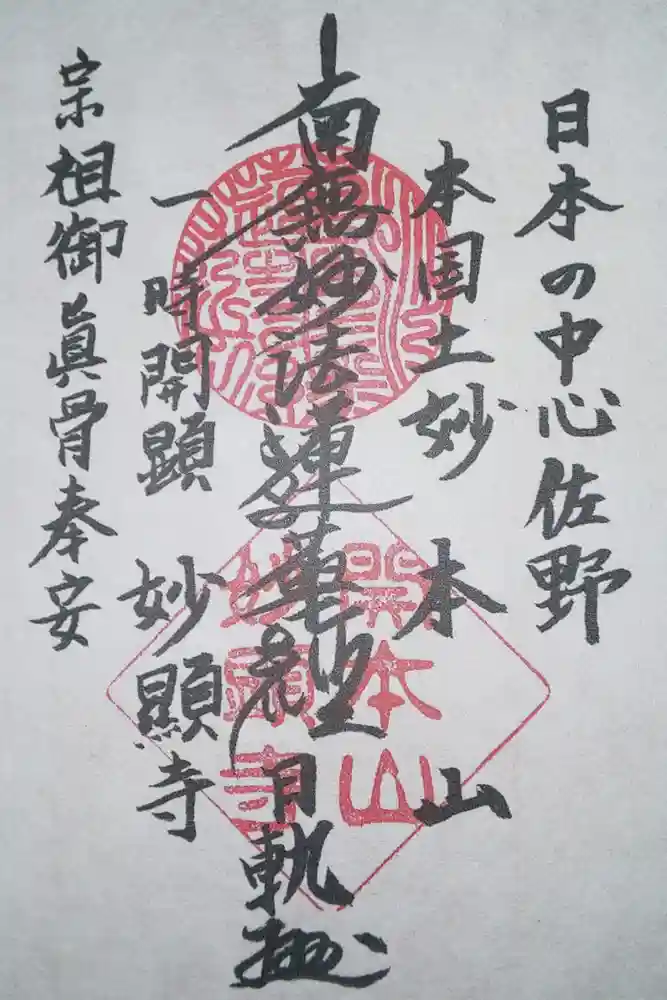 日本の中心佐野
本国土妙 本山
南無妙法蓮華経 日軌
一時開顕 妙顯寺
宗祖御眞骨奉安
開本山
妙顕寺